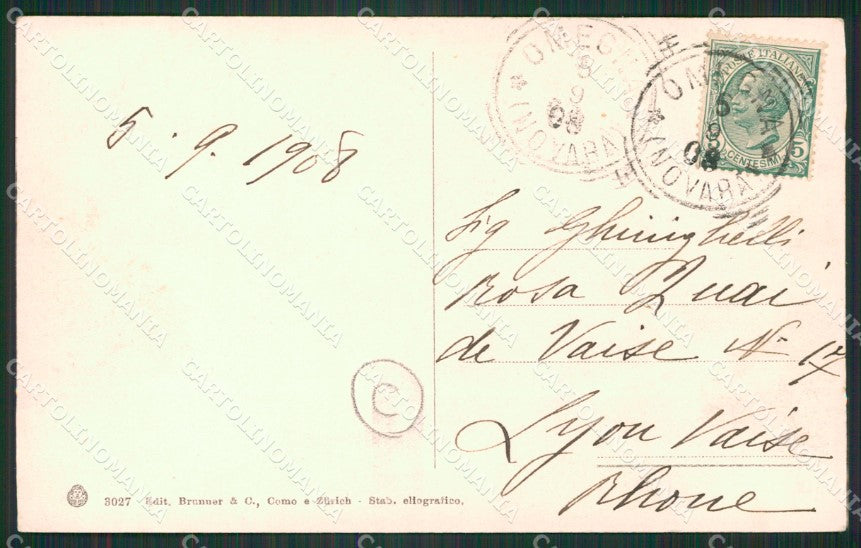 5. 9. 1908
OMEGNA
5
9
08
* (NOVARA) *
OMEGNA
5
9
08
* (NOVARA) *
POSTE ITALIANE
CENTESIMI 5
Sig Ghiringhelli
Rosa Quai
de Vaise N- 17
Lyon Vaise
Rhone
C
3027 Edit. Brunner & C., Como e Zürich - Stab. eliografico.
CARTOLINOMANIA